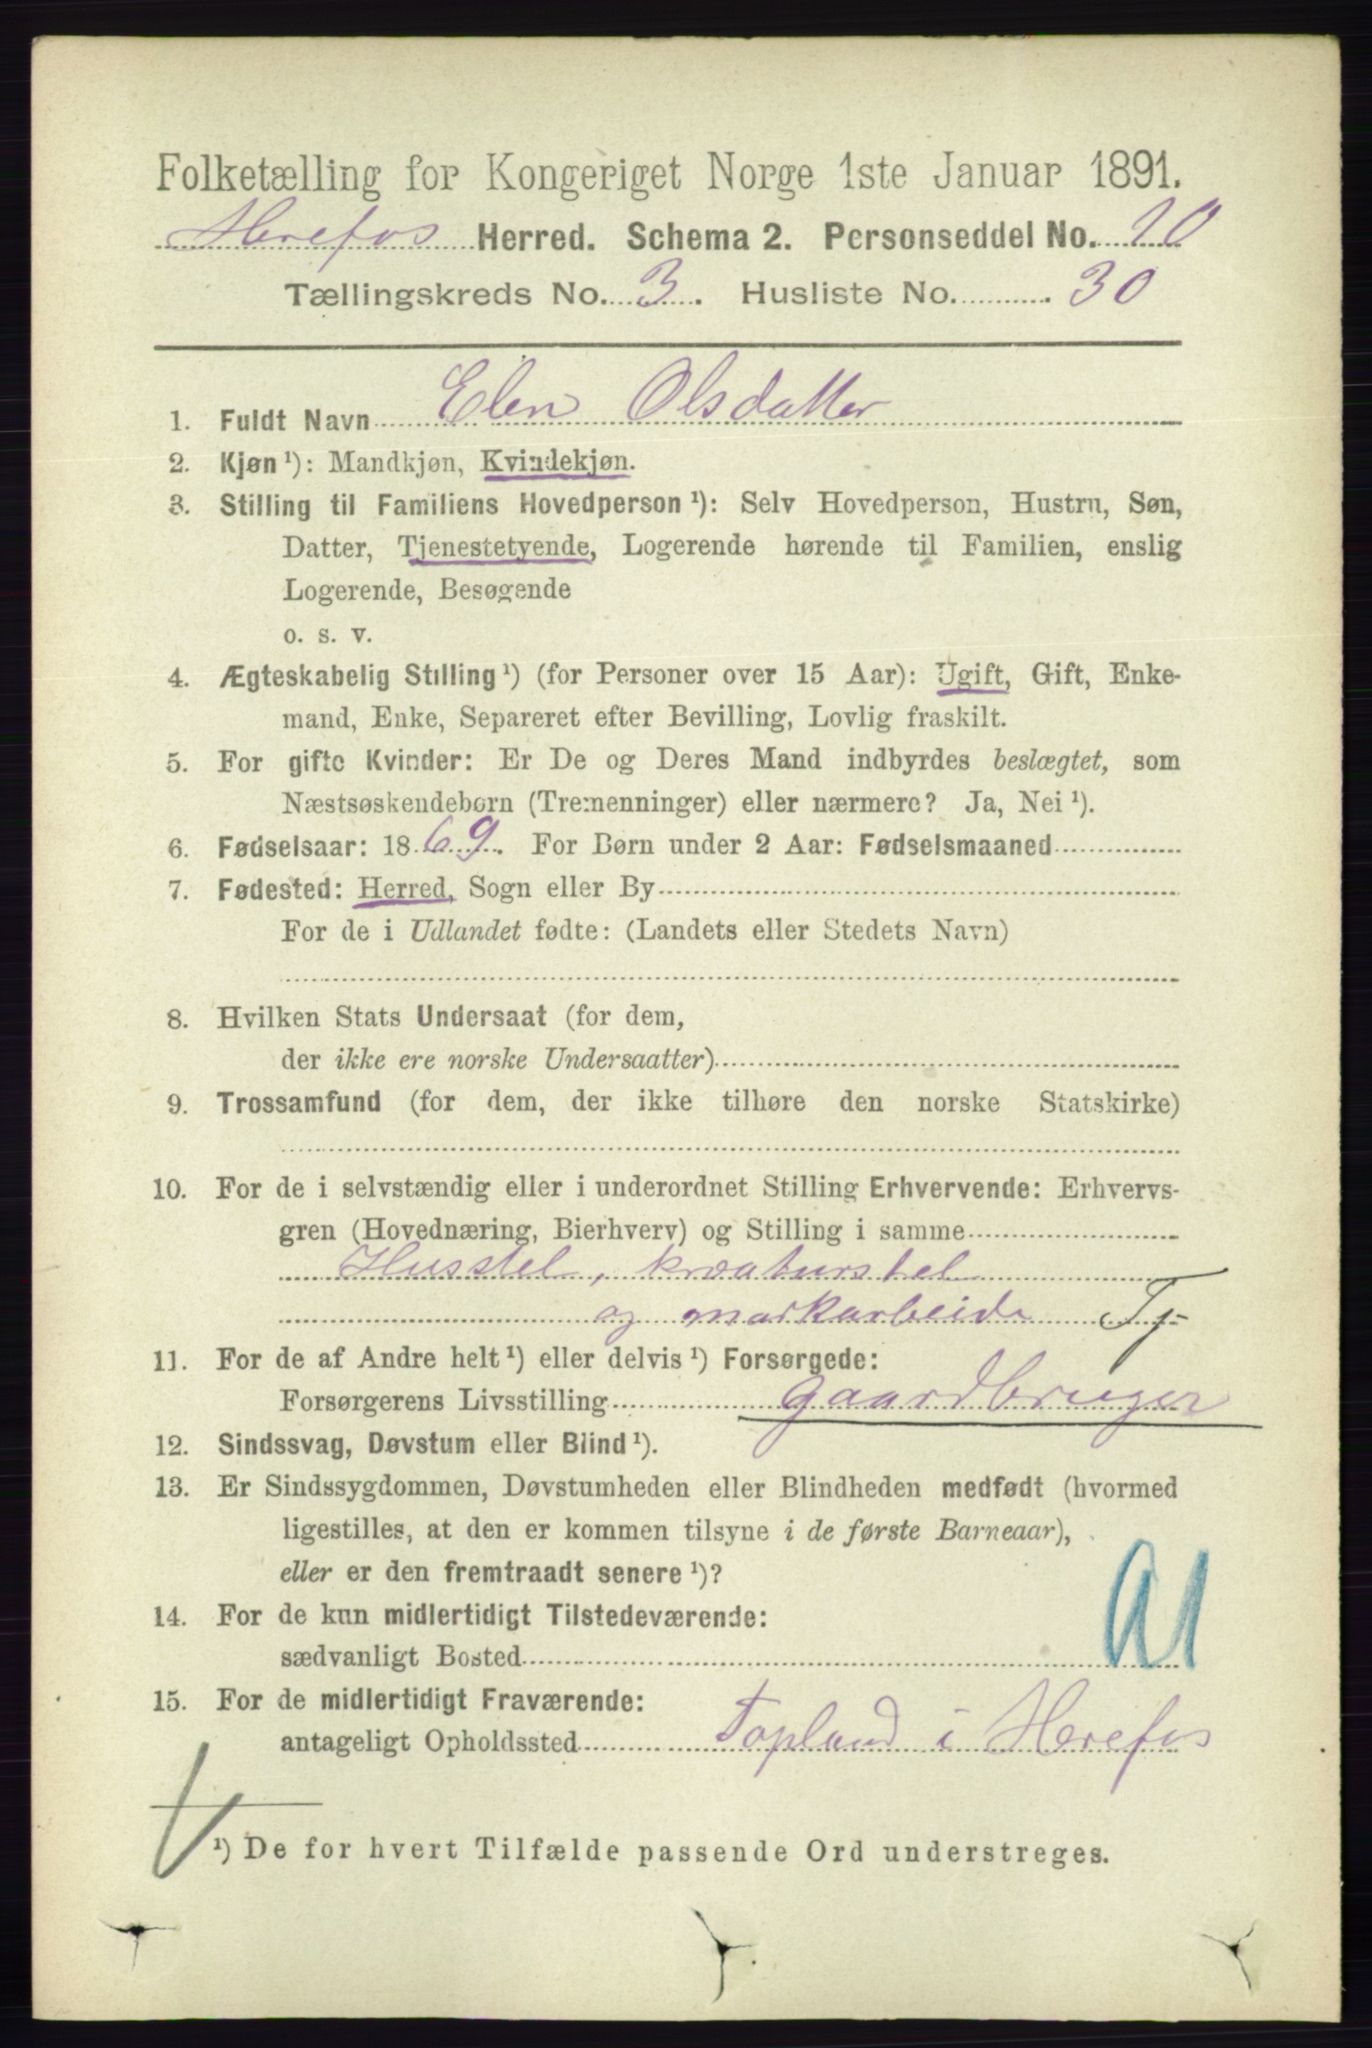 Folketælling for Kongeriget Norge 1ste Januar 1891.
Herefos Herred. Schema 2. Personseddel No. 10
Tællingskreds No. 3. Husliste No. 30
1. Fuldt Navn Elen Olsdatter
2. Kjøn ¹): Mandkjøn, Kvindekjøn.
3. Stilling til Familiens Hovedperson ¹): Selv Hovedperson, Hustru, Søn,
Datter, Tjenestetyende, Logerende hørende til Familien, enslig
Logerende, Besøgende
o. s. v.
4. Ægteskabelig Stilling ¹) (for Personer over 15 Aar): Ugift, Gift, Enke-
mand, Enke, Separeret efter Bevilling, Lovlig fraskilt.
5. For gifte Kvinder: Er De og Deres Mand indbyrdes beslægtet, som
Næstsøskendebørn (Tremenninger) eller nærmere? Ja, Nei ¹).
6. Fødselsaar: 1869. For Børn under 2 Aar: Fødselsmaaned
7. Fødested: Herred, Sogn eller By
For de i Udlandet fødte: (Landets eller Stedets Navn)
8. Hvilken Stats Undersaat (for dem,
der ikke ere norske Undersaatter)
9. Trossamfund (for dem, der ikke tilhøre den norske Statskirke)
10. For de i selvstændig eller i underordnet Stilling Erhvervende: Erhvervs-
gren (Hovednæring, Bierhverv) og Stilling i samme
Husstel, kreaturstel
og markarbeide Tj
11. For de af Andre helt ¹) eller delvis ¹) Forsørgede:
Forsørgerens Livsstilling gaardbruger
12. Sindssvag, Døvstum eller Blind ¹).
13. Er Sindssygdommen, Døvstumheden eller Blindheden medfødt (hvormed
ligestilles, at den er kommen tilsyne i de første Barneaar),
eller er den fremtraadt senere ¹)?
14. For de kun midlertidigt Tilstedeværende:
sædvanligt Bosted
15. For de midlertidigt Fraværende:
antageligt Opholdssted Topland i Herefos
¹) De for hvert Tilfælde passende Ord understreges.